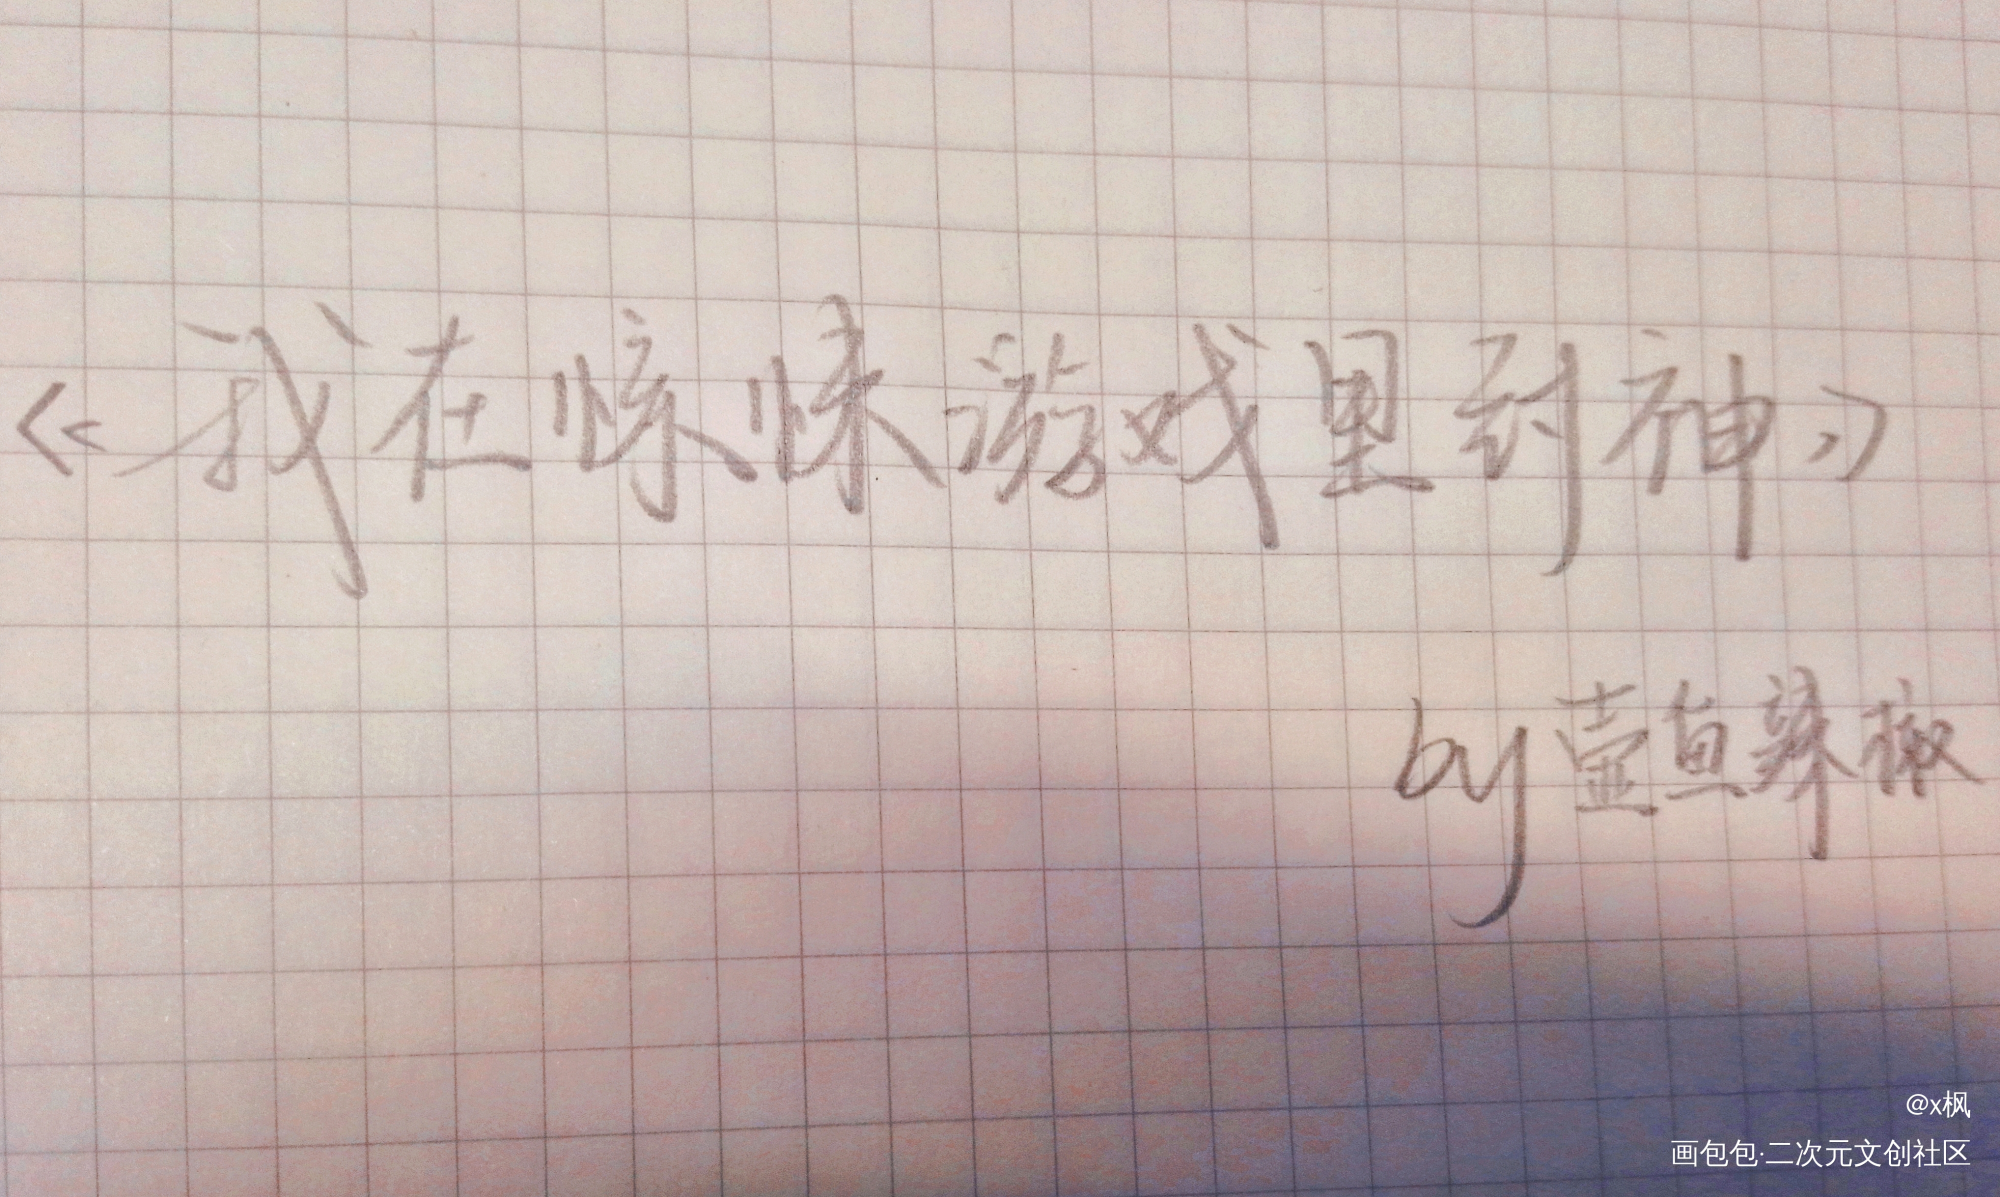 《我在惊悚游戏里封神》
by壶鱼辣椒
@x枫
画包包·二次元文创社区